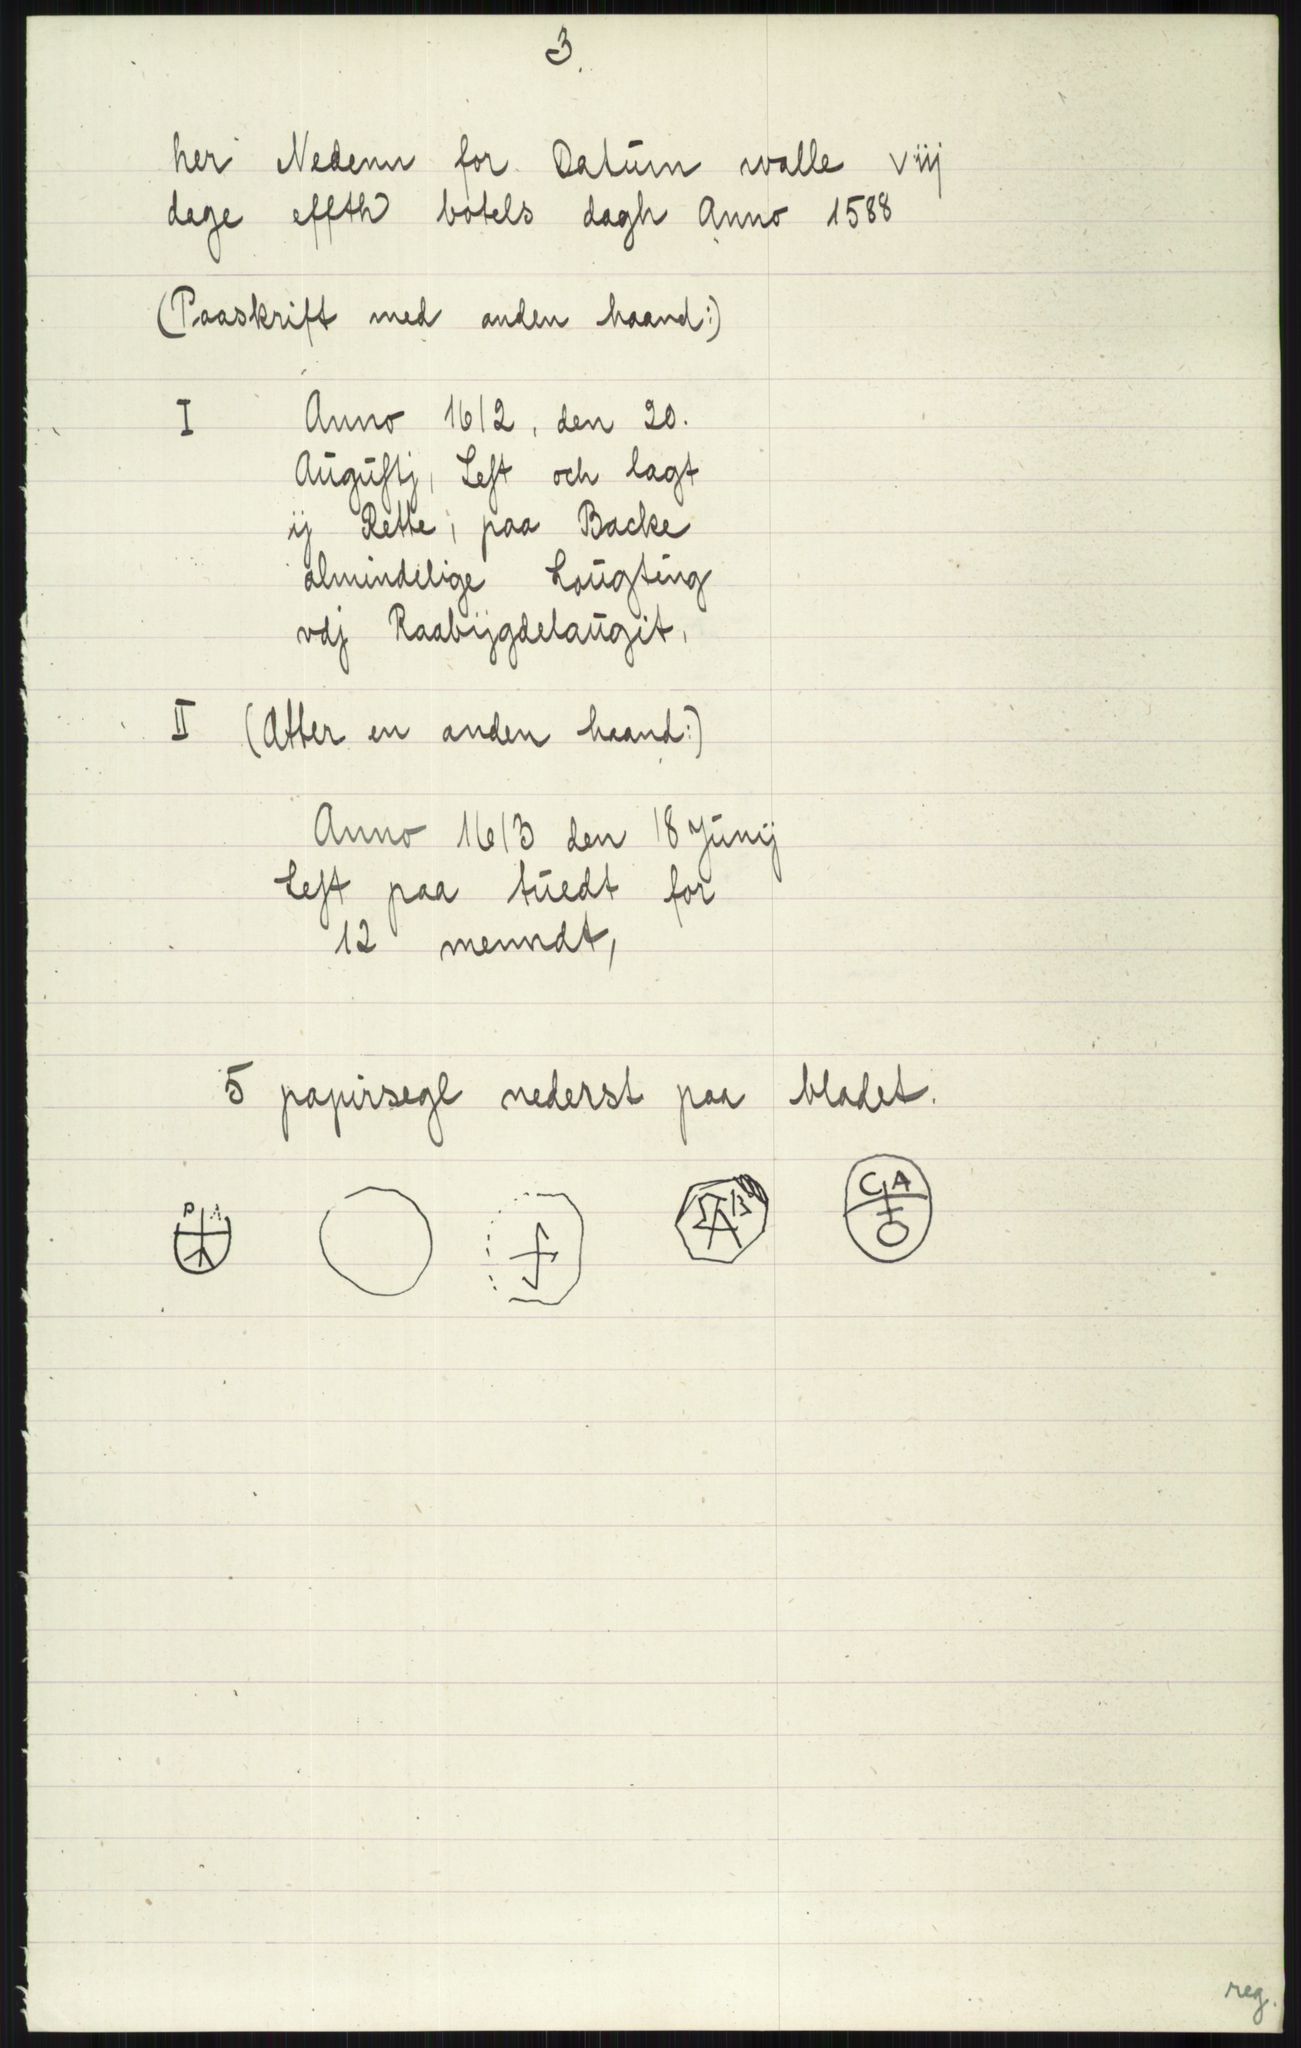 3.
her Nedenn for Datŭm walle viij
dage effth botels dagh Anno 1588
(Paaskrift med anden haand:)
I Anno 1612, den 20.
Aŭgŭstj, Lest och lagt
ij Rette, paa Backe
almindelige Laŭgting
vdj Raabijgdelaŭgit,
II (Atter en anden haand:)
Anno 1613 den 18 Jŭnij
Lest paa tŭedt for
12 menndt,
5 papirsegl nederst paa bladet.
P A
C A
reg.